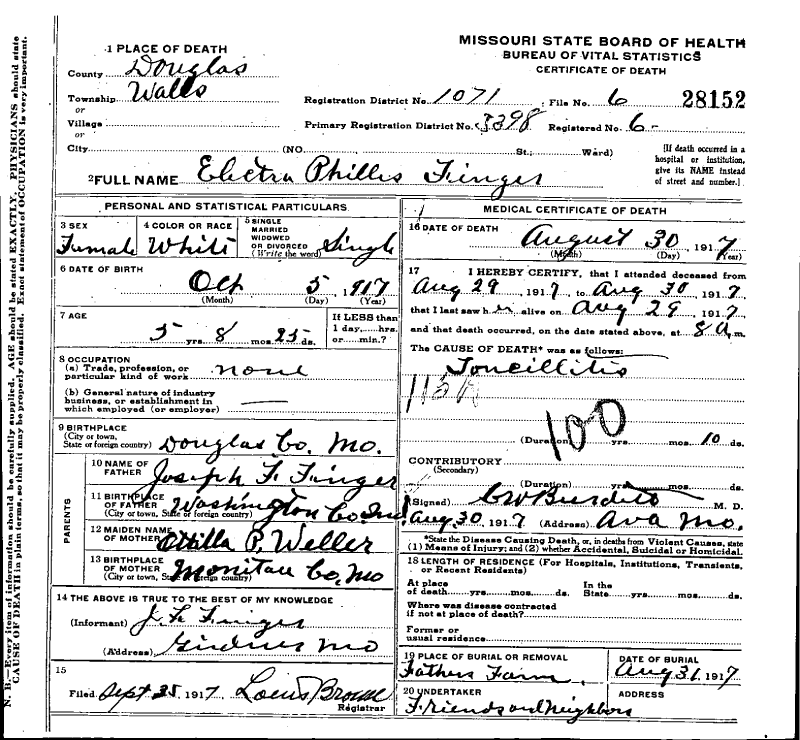 MISSOURI STATE BOARD OF HEALTH
BUREAU OF VITAL STATISTICS
CERTIFICATE OF DEATH
1 PLACE OF DEATH
County Douglas
Township Walls
or
Village
or
City (NO. St.; Ward)
Registration District No. 1071 File No. 6 28152
Primary Registration District No. 5398 Registered No. 6-
[If death occurred in a hospital or institution, give its NAME instead of street and number.]
2 FULL NAME Electra Phillis Finger
PERSONAL AND STATISTICAL PARTICULARS
3 SEX Fumale
4 COLOR OR RACE White
5 SINGLE MARRIED WIDOWED OR DIVORCED (Write the word) Single
6 DATE OF BIRTH Oct 5, 1917
(Month) (Day) (Year)
7 AGE 5 yrs. 8 mos. 25 ds.
If LESS than 1 day,.....hrs. or.....min.?
8 OCCUPATION
(a) Trade, profession, or particular kind of work none
(b) General nature of industry business, or establishment in which employed (or employer)
9 BIRTHPLACE
(City or town, State or foreign country) Douglas Co. Mo.
PARENTS
10 NAME OF FATHER Joseph F. Finger
11 BIRTHPLACE OF FATHER (City or town, State or foreign country) Washington Co. Ind
12 MAIDEN NAME OF MOTHER Ottilla P. Weller
13 BIRTHPLACE OF MOTHER (City or town, State or foreign country) Monitau Co, Mo
14 THE ABOVE IS TRUE TO THE BEST OF MY KNOWLEDGE
(Informant) J. F. Finger
(Address) Mo
15
Filed Sept 25 1917 Louis Registrar
MEDICAL CERTIFICATE OF DEATH
16 DATE OF DEATH August 30, 1917
(Month) (Day) (Year)
17 I HEREBY CERTIFY, that I attended deceased from
Aug 29 1917, to Aug 30 1917,
that I last saw her alive on Aug 29 1917,
and that death occurred, on the date stated above, at 8 A.m.
The CAUSE OF DEATH* was as follows:
Toncillitis
100
(Duration) yrs. mos. 10 ds.
CONTRIBUTORY
(Secondary)
(Duration) yrs. mos. ds.
(Signed) M. D.
Aug. 30, 1917 (Address) Ava Mo.
*State the Disease Causing Death, or, in deaths from Violent Causes, state
(1) Means of Injury; and (2) whether Accidental, Suicidal or Homicidal.
18 LENGTH OF RESIDENCE (For Hospitals, Institutions, Transients, or Recent Residents)
At place of death.....yrs.....mos.....ds. In the State.....yrs.....mos.....ds.
Where was disease contracted if not at place of death?
Former or usual residence
19 PLACE OF BURIAL OR REMOVAL Fathers Farm.
DATE OF BURIAL Aug 31 1917
20 UNDERTAKER Friends and Neighbors
ADDRESS
N. B.—Every item of information should be carefully supplied. AGE should be stated EXACTLY. PHYSICIANS should state
CAUSE OF DEATH in plain terms, so that it may be properly classified. Exact statement of OCCUPATION is very important.